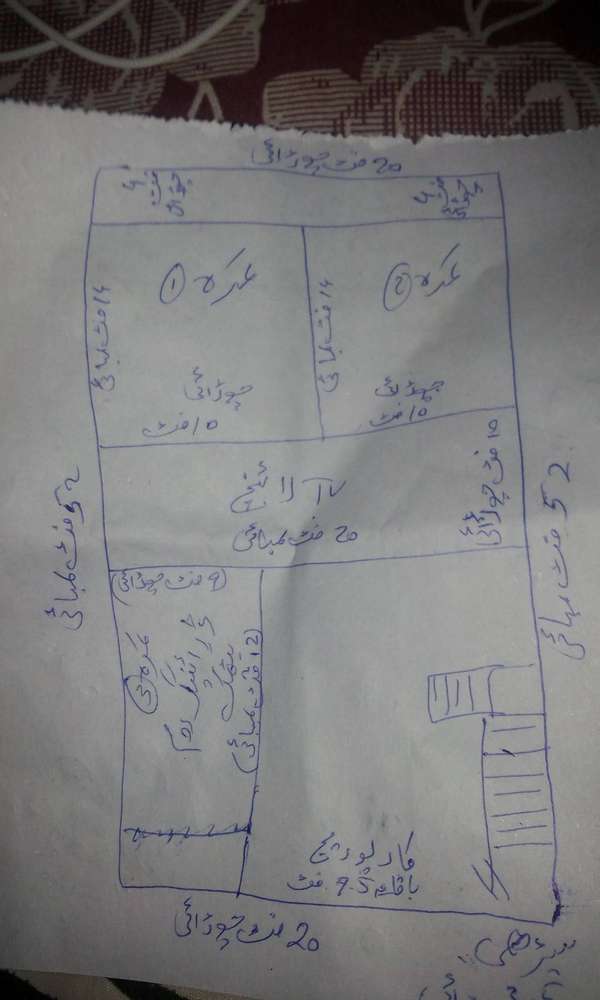 20 فٹ چوڑائی
4 فٹ چوڑائی
4 فٹ چوڑائی
کمرہ 2
کمرہ 1
14 فٹ لمبائی
14 فٹ لمبائی
چوڑائی
10 فٹ
چوڑائی
10 فٹ
52 فٹ لمبائی
10 فٹ چوڑائی
ٹی وی لاؤنج
20 فٹ لمبائی
52 فٹ لمبائی
(9 فٹ چوڑائی)
کمرہ 3
ڈرائنگ روم
بیٹھک
(12 فٹ لمبائی)
کار پورچ
فٹ
20 فٹ چوڑائی
سیڑھی